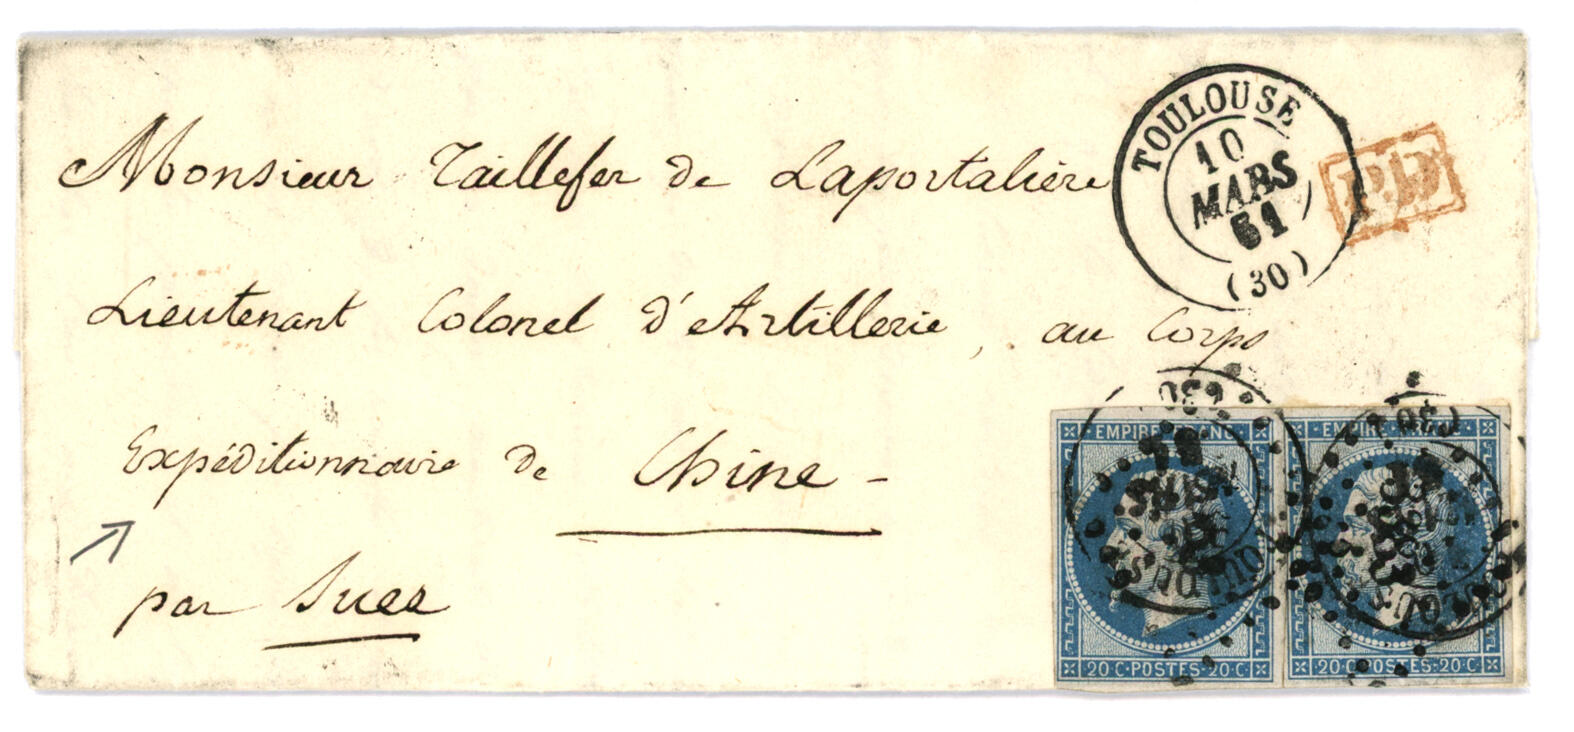 Monsieur Taillefer de Laportalière
Lieutenant Colonel d'Artillerie, au Corps
Expéditionnaire de Chine -
par Suez
TOULOUSE
10
MARS
61
(30)
P.D.
EMPIRE FRANC
20 C · POSTES · 20 C
EMPIRE
20 C · POSTES · 20 C